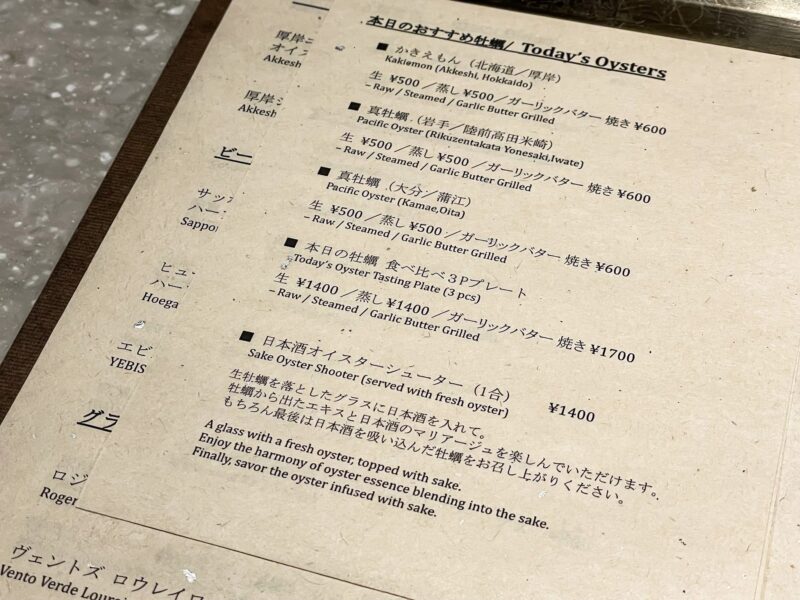 本日のおすすめ牡蠣/ Today's Oysters
■ かきえもん（北海道／厚岸）
Kakiemon (Akkeshi, Hokkaido)
生 ¥500 ／蒸し ¥500 ／ガーリックバター 焼き ¥600
– Raw / Steamed / Garlic Butter Grilled
■ 真牡蠣（岩手／陸前高田米崎）
Pacific Oyster (Rikuzentakata Yonesaki,Iwate)
生 ¥500 ／蒸し ¥500 ／ガーリックバター 焼き ¥600
– Raw / Steamed / Garlic Butter Grilled
■ 真牡蠣（大分／蒲江）
Pacific Oyster (Kamae,Oita)
生 ¥500 ／蒸し ¥500 ／ガーリックバター 焼き ¥600
– Raw / Steamed / Garlic Butter Grilled
■ 本日の牡蠣 食べ比べ３Ｐプレート
Today's Oyster Tasting Plate (3 pcs)
生 ¥1400 ／蒸し ¥1400 ／ガーリックバター 焼き ¥1700
– Raw / Steamed / Garlic Butter Grilled
■ 日本酒オイスターシューター（1合） ¥1400
Sake Oyster Shooter (served with fresh oyster)
生牡蠣を落としたグラスに日本酒を入れて。
牡蠣から出たエキスと日本酒のマリアージュを楽しんでいただけます。
もちろん最後は日本酒を吸い込んだ牡蠣をお召し上がりください。
A glass with a fresh oyster, topped with sake.
Enjoy the harmony of oyster essence blending into the sake.
Finally, savor the oyster infused with sake.
厚岸
オイス
Akkesh
厚岸
Akkesh
ビー
サッ
ハー
Sappo
ヒュ
ハー
Hoega
エビ
YEBIS
グラ
ロジ
Roger
ヴェントズ ロウレイロ
Vento Verde